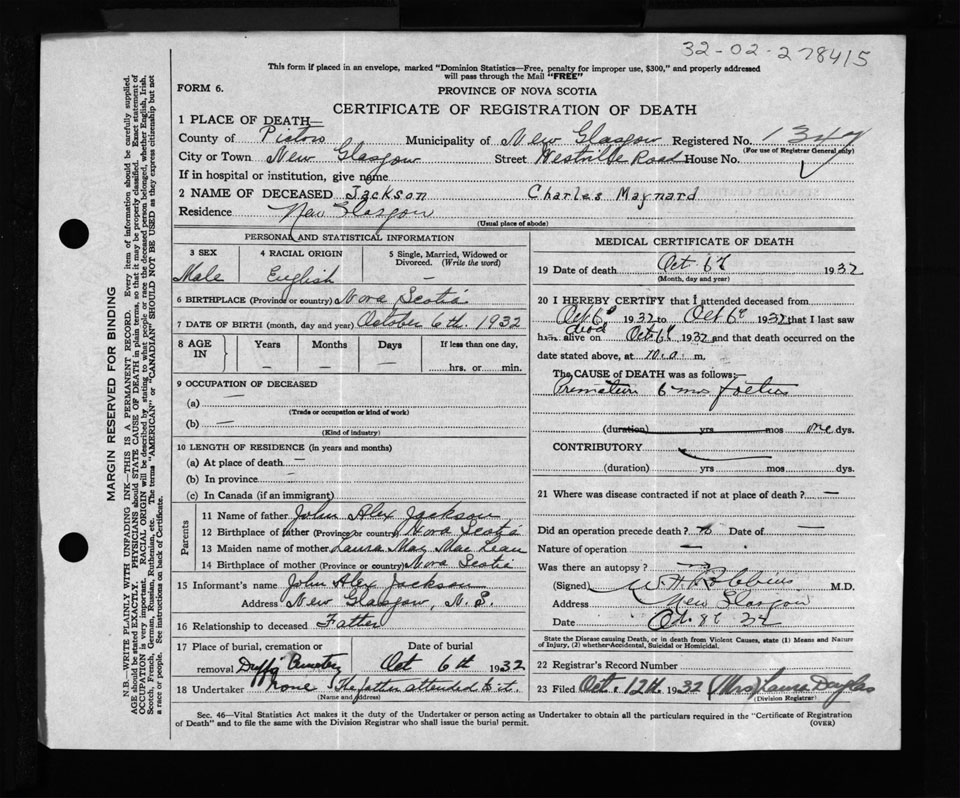 32-02-278415
This form if placed in an envelope, marked "Dominion Statistics—Free, penalty for improper use, $300," and properly addressed
will pass through the Mail "FREE"
FORM 6.
PROVINCE OF NOVA SCOTIA
CERTIFICATE OF REGISTRATION OF DEATH
1 PLACE OF DEATH—
County of Pictou Municipality of New Glasgow Registered No. 1347
(For use of Registrar General only)
City or Town New Glasgow Street Westville Road House No.
If in hospital or institution, give name
2 NAME OF DECEASED Jackson Charles Maynard
Residence New Glasgow
(Usual place of abode)
PERSONAL AND STATISTICAL INFORMATION
3 SEX 4 RACIAL ORIGIN 5 Single, Married, Widowed or
Divorced. (Write the word)
Male English —
6 BIRTHPLACE (Province or country) Nova Scotia
7 DATE OF BIRTH (month, day and year) October 6th. 1932
8 AGE IN Years Months Days If less than one day,
— — — hrs. or min.
9 OCCUPATION OF DECEASED
(a) —
(Trade or occupation or kind of work)
(b) —
(Kind of industry)
10 LENGTH OF RESIDENCE (in years and months)
(a) At place of death —
(b) In province —
(c) In Canada (if an immigrant)
Parents
11 Name of father John Alex Jackson
12 Birthplace of father (Province or country) Nova Scotia
13 Maiden name of mother Laura May MacLean
14 Birthplace of mother (Province or country) Nova Scotia
15 Informant's name John Alex Jackson
Address New Glasgow, N.S.
16 Relationship to deceased Father
17 Place of burial, cremation or Date of burial
removal Duffs Cemetery Oct 6th 1932
18 Undertaker none (The father attended to it.
(Name and address)
MEDICAL CERTIFICATE OF DEATH
19 Date of death Oct 6th 1932
(Month, day and year)
20 I HEREBY CERTIFY that I attended deceased from
Oct 6th 1932 to Oct 6th 1932 that I last saw
dead
h alive on Oct 6th 1932 and that death occurred on the
date stated above, at m.
The CAUSE of DEATH was as follows:—
6 mos foetus
(duration) yrs mos one dys.
CONTRIBUTORY
(duration) yrs mos dys.
21 Where was disease contracted if not at place of death? —
Did an operation precede death? no Date of —
Nature of operation —
Was there an autopsy? no
(Signed) W H Robbins M.D.
Address New Glasgow
Date Oct. 8th 32
State the Disease causing Death, or in death from Violent Causes, state (1) Means and Nature
of Injury, (2) whether-Accidental, Suicidal or Homicidal.
22 Registrar's Record Number
23 Filed Oct. 12th. 1932 (Mrs) Laura Douglas
(Division Registrar)
Sec. 46—Vital Statistics Act makes it the duty of the Undertaker or person acting as Undertaker to obtain all the particulars required in the "Certificate of Registration
of Death" and to file the same with the Division Registrar who shall issue the burial permit. (OVER)
MARGIN RESERVED FOR BINDING
N.B.—WRITE PLAINLY WITH UNFADING INK—THIS IS A PERMANENT RECORD. Every item of information should be carefully supplied.
AGE should be stated EXACTLY. PHYSICIANS should STATE CAUSE OF DEATH in plain terms, so that it may be properly classified. Exact statement of
OCCUPATION is very important. RACIAL ORIGIN will be described by stating to what people or race the deceased person belonged, whether English, Irish,
Scotch, French, German, Russian, Ruthenian, etc. The terms "AMERICAN" or "CANADIAN" SHOULD NOT BE USED as they express citizenship but not
a race or people. See instructions on back of Certificate.